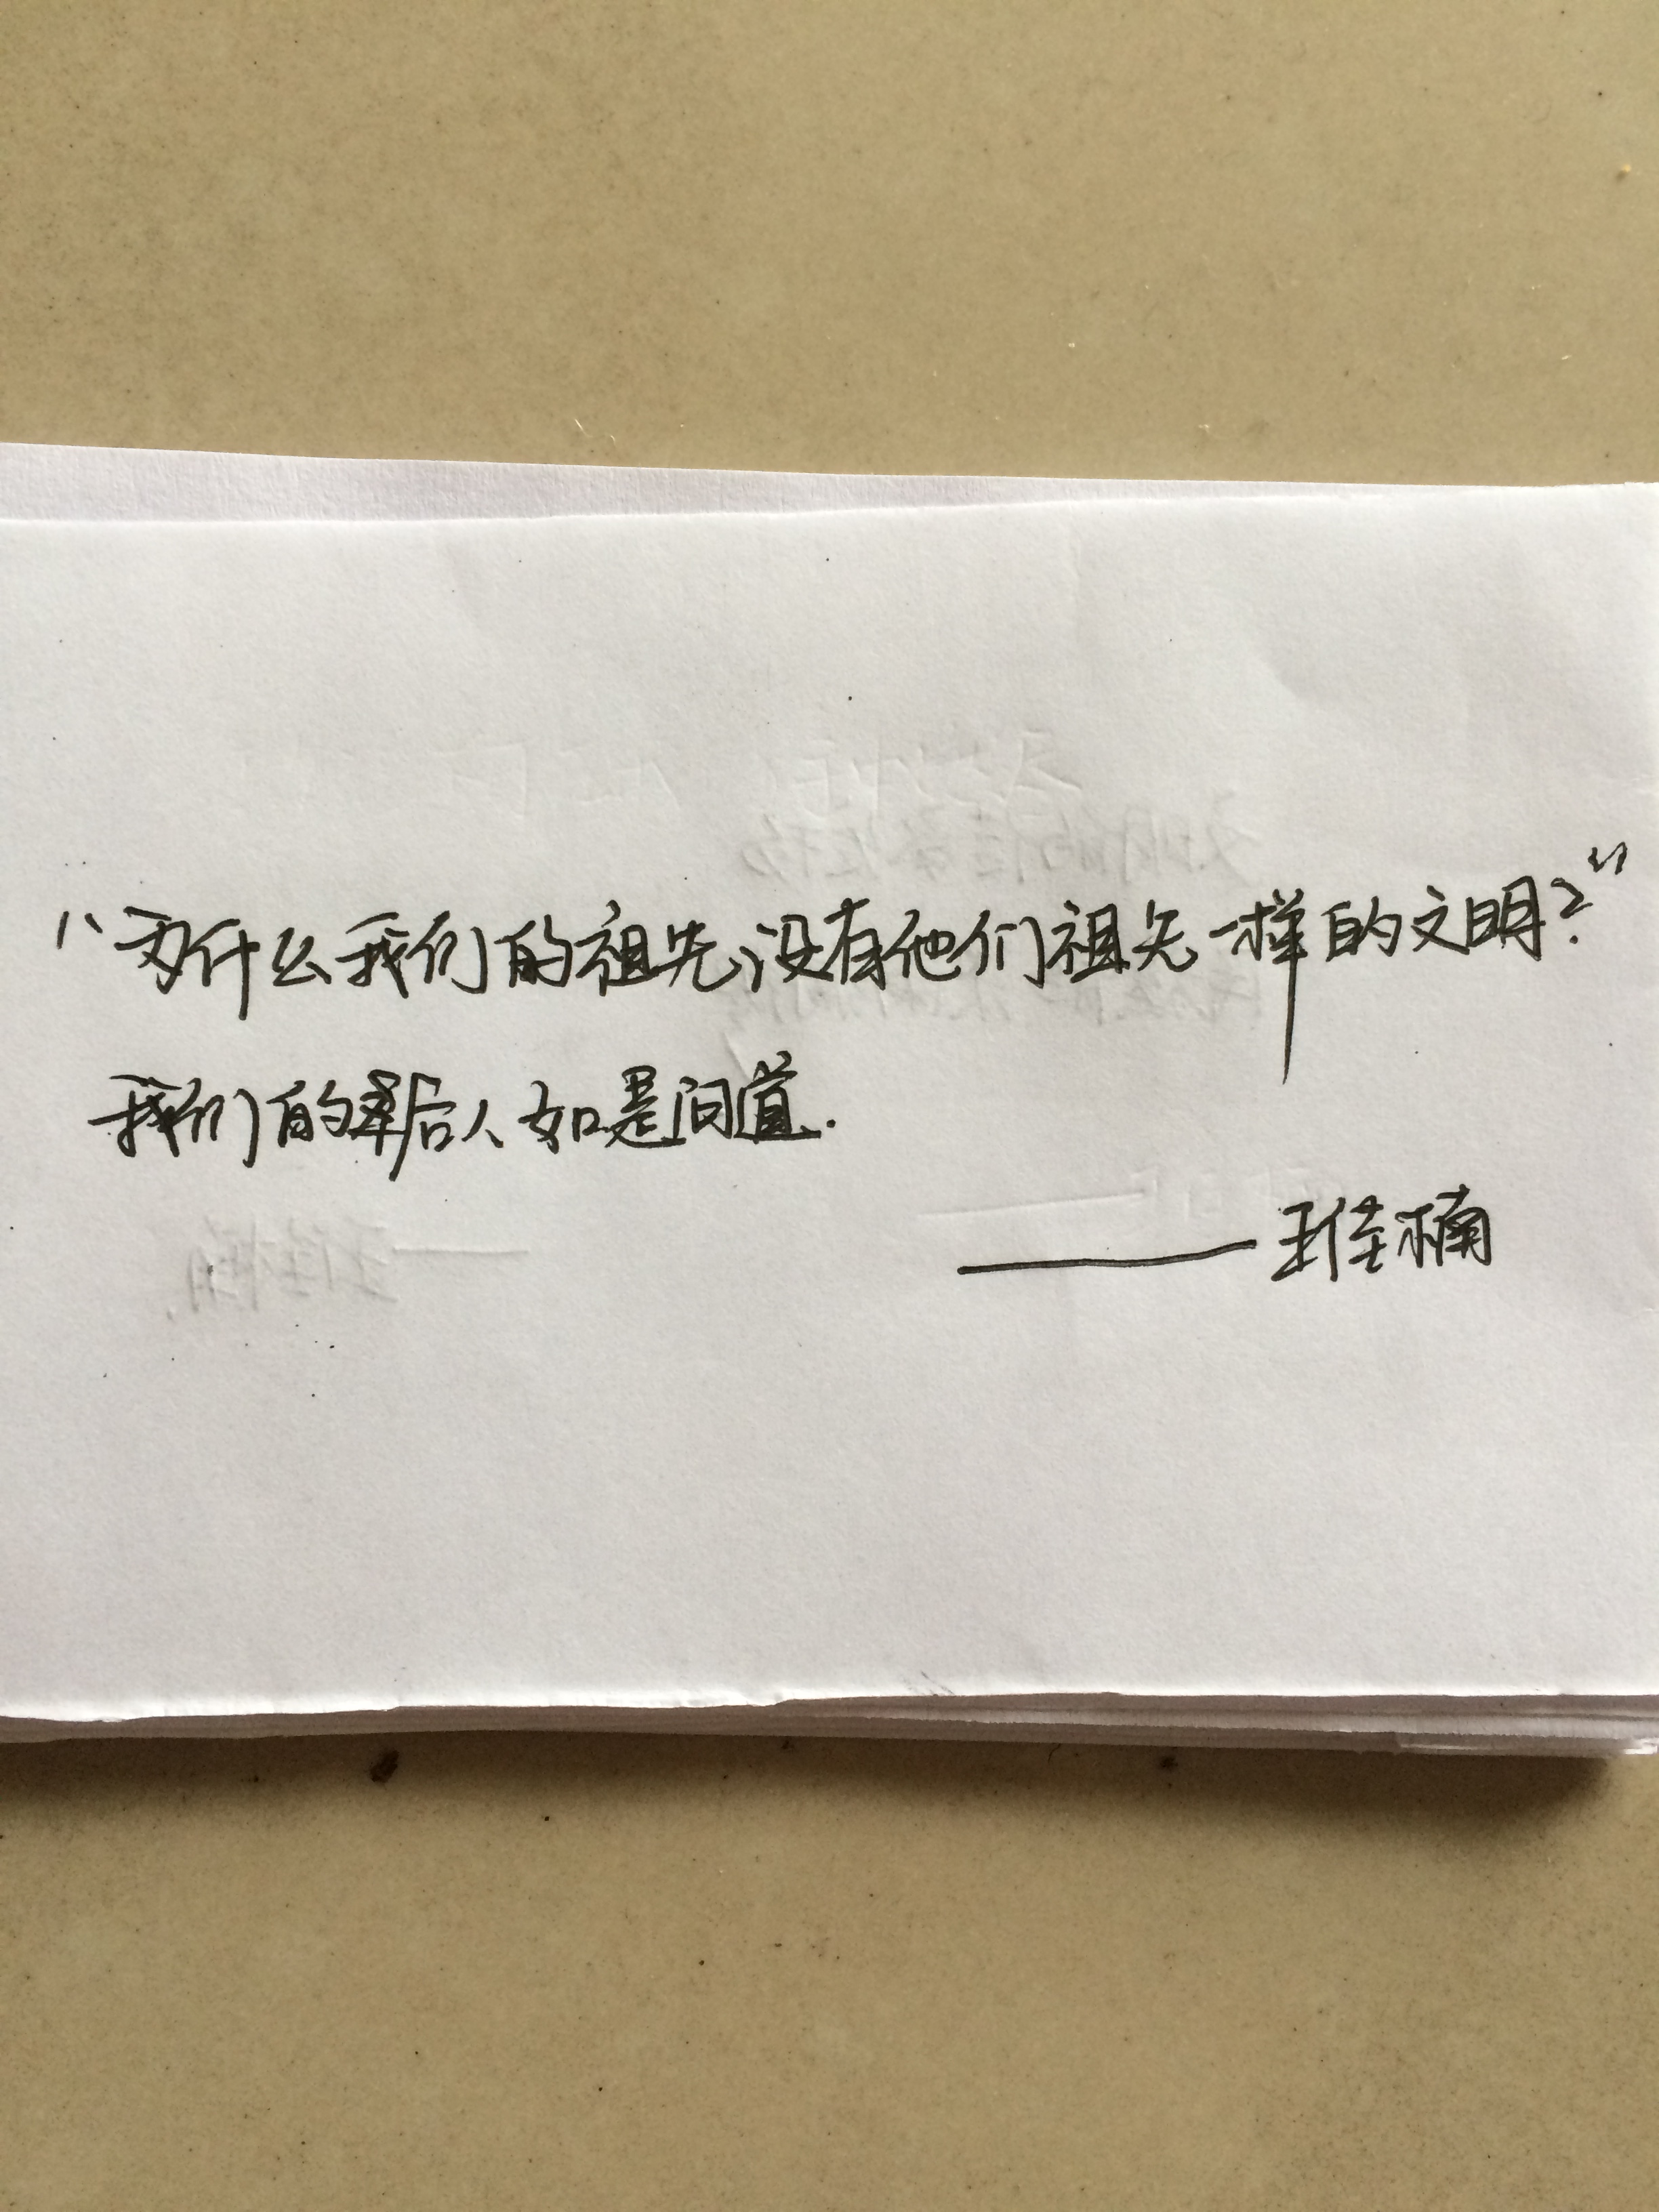 “为什么我们的祖先没有他们祖先一样的文明？”
我们的后人如是问道.
——王佳楠